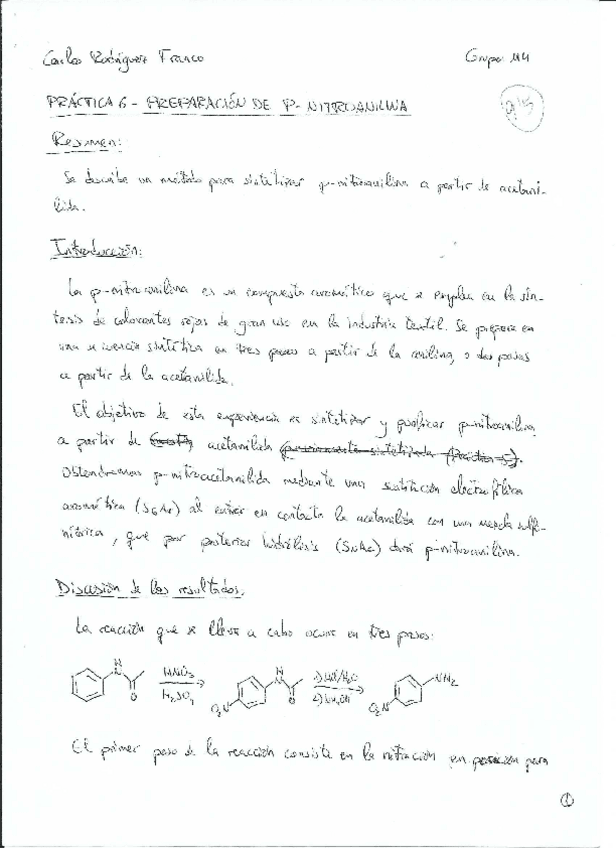 Carlos Rodríguez Franco Grupo M4
PRÁCTICA 6 - PREPARACIÓN DE P-NITROANILINA
9'5
Resumen:
Se describe un método para sintetizar p-nitroanilina a partir de acetani-
lida.
Introducción:
La p-nitroanilina es un compuesto aromático que se emplea en la sín-
tesis de colorantes rojos de gran uso en la industria textil. Se prepara en
una secuencia sintética en tres pasos a partir de la anilina, o dos pasos
a partir de la acetanilida.
El objetivo de esta experiencia es sintetizar y purificar p-nitroanilina
a partir de acetanilida previamente sintetizada (Práctica 5).
Obtendremos p-nitroacetanilida mediante una sustitución electrofílica
aromática (SEAr) al entrar en contacto la acetanilida con una mezcla sulfo-
nítrica, que por posterior hidrólisis (SNAc) dará p-nitroanilina.
Discusión de los resultados.
La reacción que se lleva a cabo ocurre en tres pasos:
H N O HNO3 H2SO4 O2N H N O 1) HCl/H2O 2) NH4OH O2N NH2
El primer paso de la reacción consiste en la nitración en posición para
1